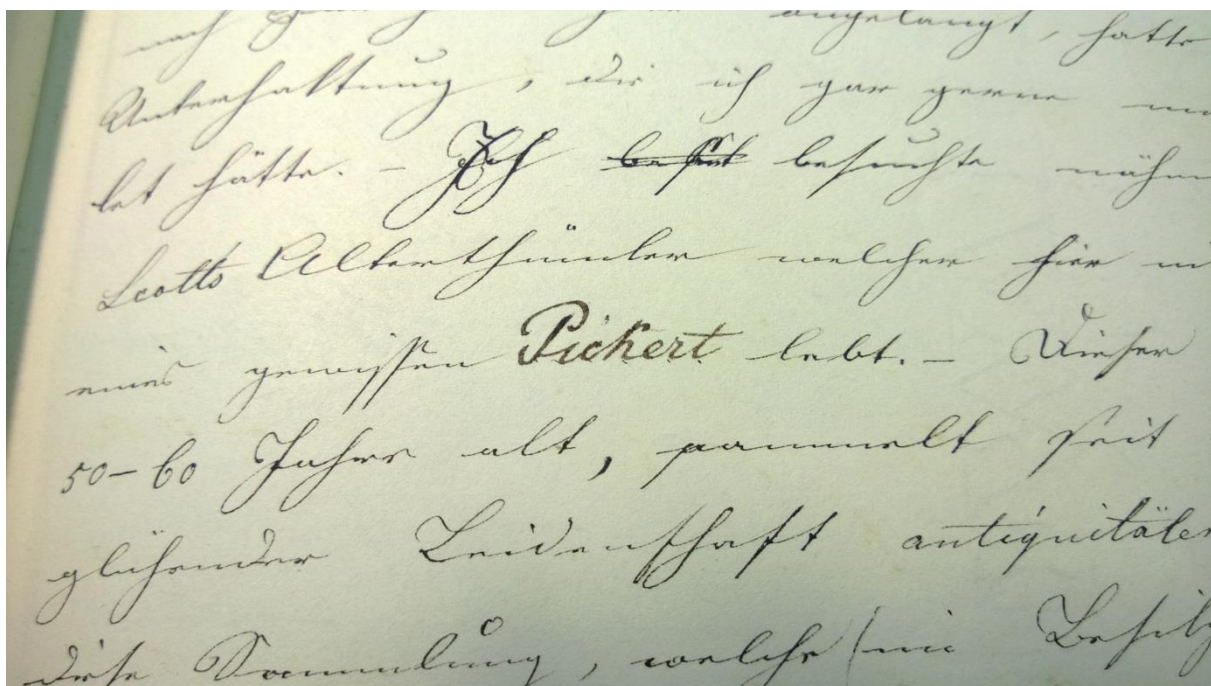 nach angelangt, hatte
Unterhaltung, die ich gar gerne
let hätte. – Ich besucht besuchte
Scotts Alterthümler welcher hier
eines gewissen Pickert lebt. – Dieser
50–60 Jahre alt, sammelt seit
glühender Leidenschaft antiquitäten
diese Sammlung, welche im Besitz